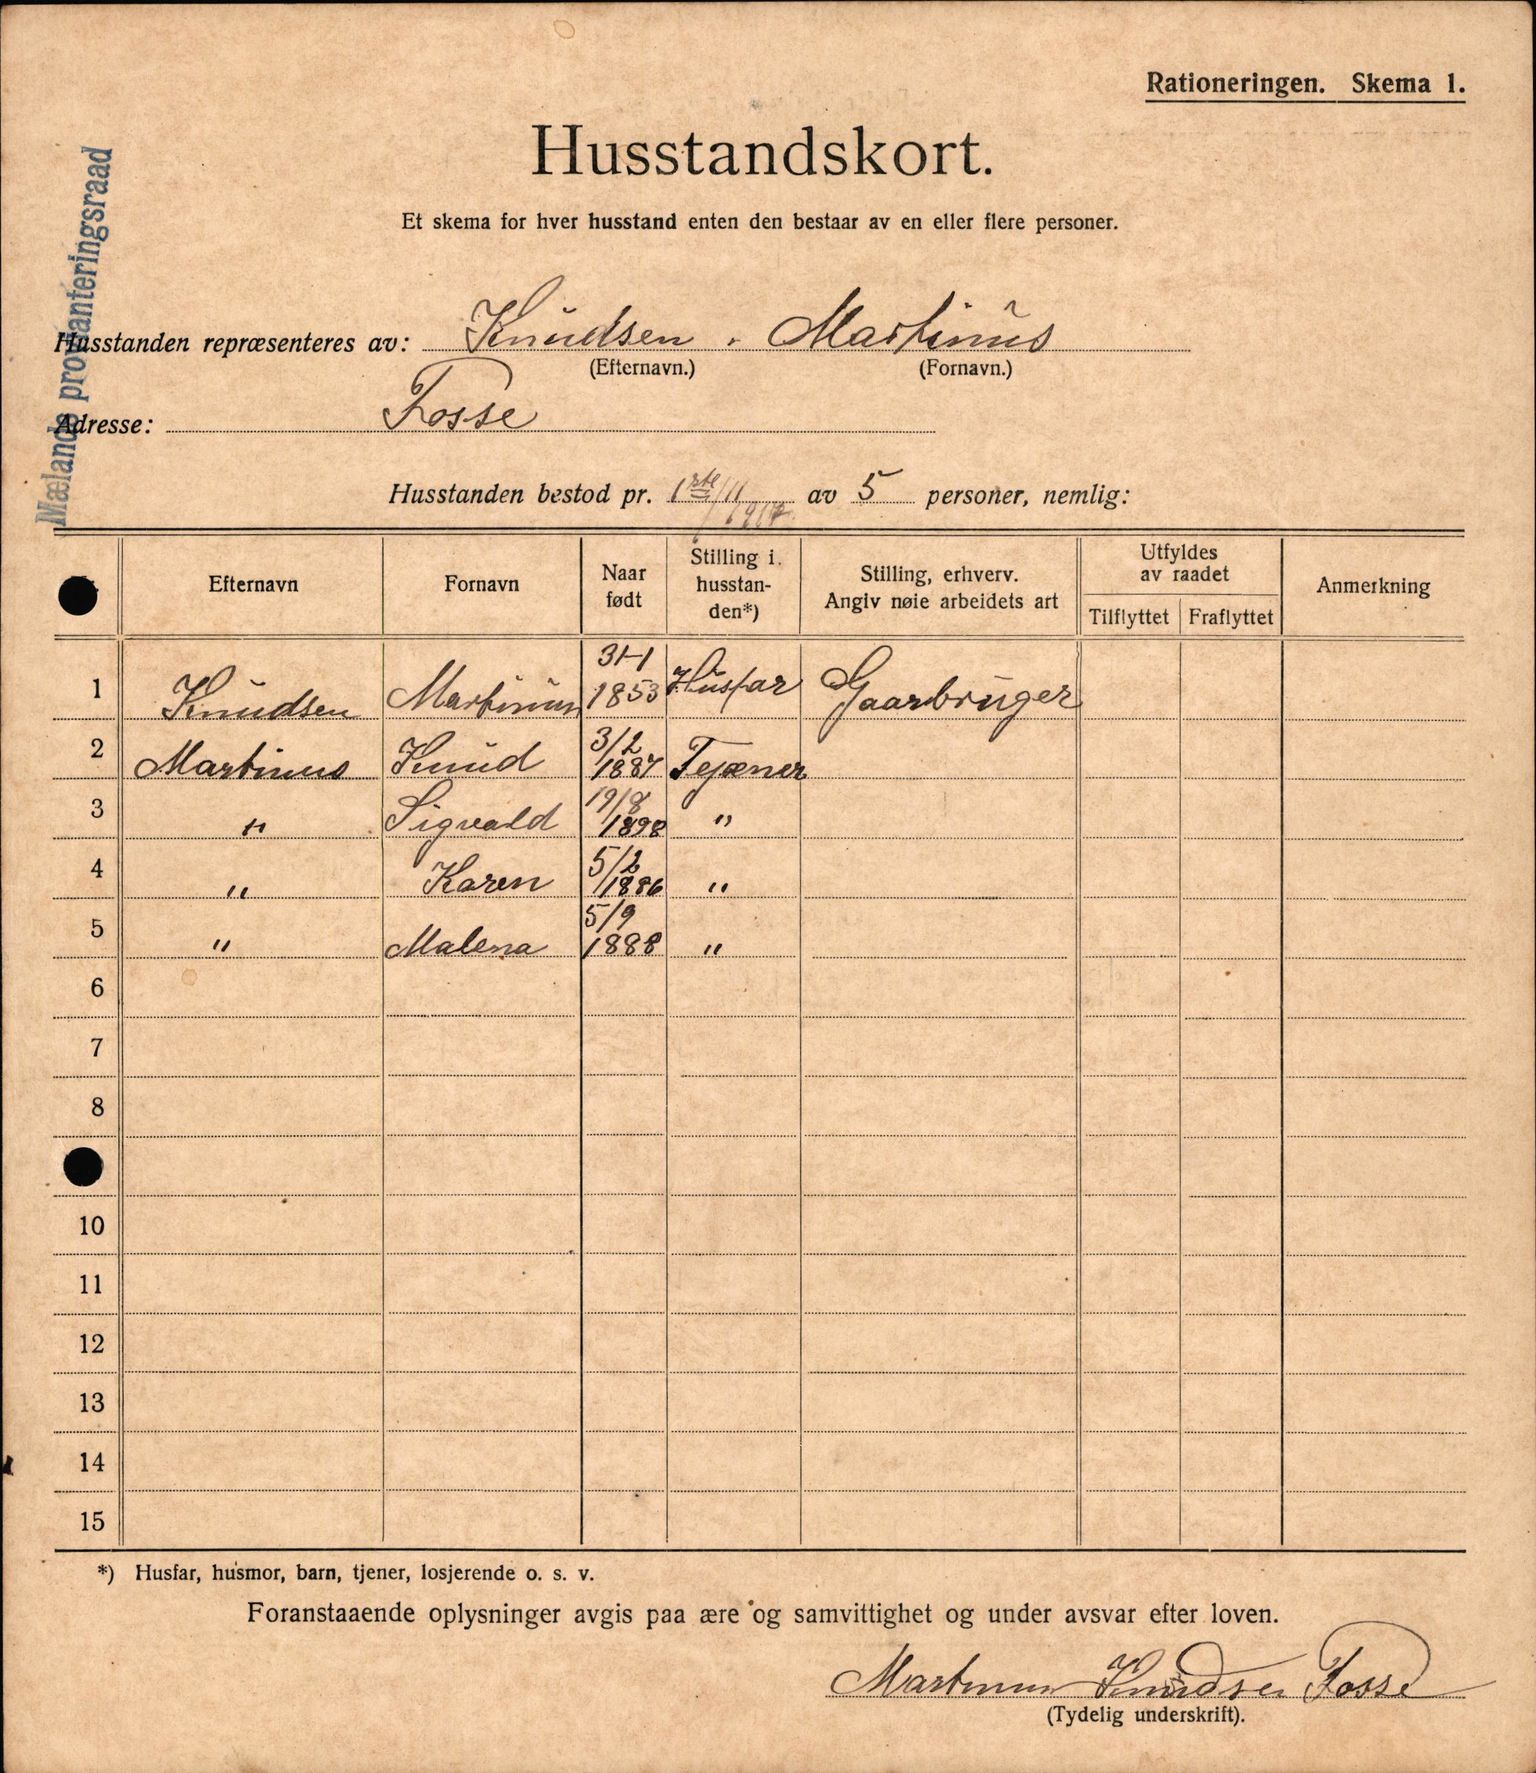 Rationeringen. Skema 1.
Husstandskort.
Et skema for hver husstand enten den bestaar av en eller flere personer.
Mælands provianteringsraad
Husstanden repræsenteres av: Knudsen . Martinus
(Efternavn.) (Fornavn.)
Adresse: Fosse
Husstanden bestod pr. 1ste/11 1917 av 5 personer, nemlig:
Efternavn Fornavn Naar født Stilling i husstanden*) Stilling, erhverv. Angiv nøie arbeidets art Utfyldes av raadet Tilflyttet Fraflyttet Anmerkning
1 Knudsen Martinus 31-1 1853 Husfar Gaarbruger
2 Martinus Knud 3/2 1887 Tejæner
3 " Sigvald 19/8 1898 "
4 " Karen 5/2 1886 "
5 " Malena 5/9 1888 "
6
7
8
10
11
12
13
14
15
*) Husfar, husmor, barn, tjener, losjerende o. s. v.
Foranstaaende oplysninger avgis paa ære og samvittighet og under avsvar efter loven.
Martinus Knudsen Fosse
(Tydelig underskrift).